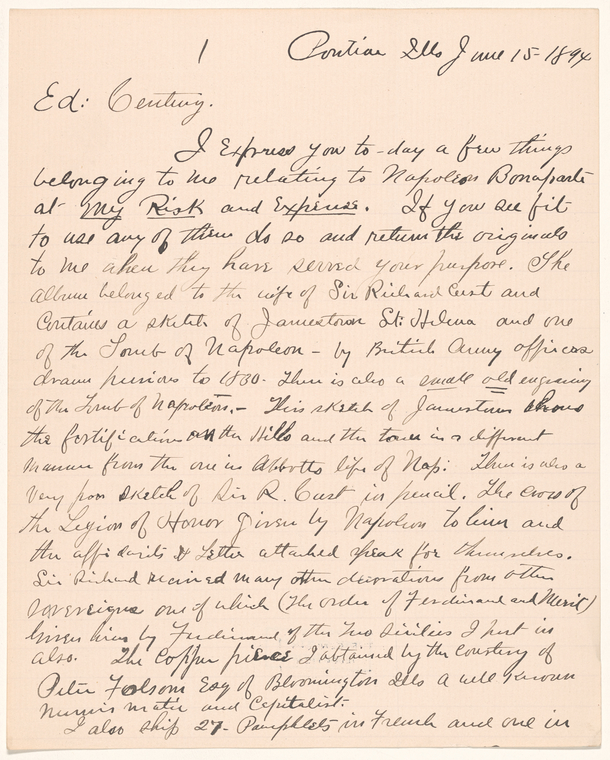 1 Pontiac Ills June 15-1894
Ed: Century.
I Express you to-day a few things
belonging to me relating to Napoleon Bonaparte
at my Risk and Expense. If you see fit
to use any of them do so and return the originals
to me when they have served your purpose. The
album belonged to the wife of Sir Richard Cust and
Contains a sketch of Jamestown St: Helena and one
of the Tomb of Napoleon - by British Army officers
drawn previous to 1830. There is also a small old engraving
of the Tomb of Napoleon.- This sketch of Jamestown shows
the fortifications on the Hills and the town in a different
manner from the one in Abbotts life of Nap: There is also a
very poor sketch of Sir R. Cust in pencil. The cross of
the Legion of Honor given by Napoleon to him and
the affidavits & Letter attached speak for themselves.
Sir Richard received many other decorations from other
sovereigns one of which (The order of Ferdinand and Merit)
Given him by Ferdinand of the Two Sicilies I put in
also. The Copper piece I obtained by the courtesy of
Peter Folsom Esq of Bloomington Ills a well known
Numismatic and Capitalist.
I also ship 27- Pamphlets in French and one in